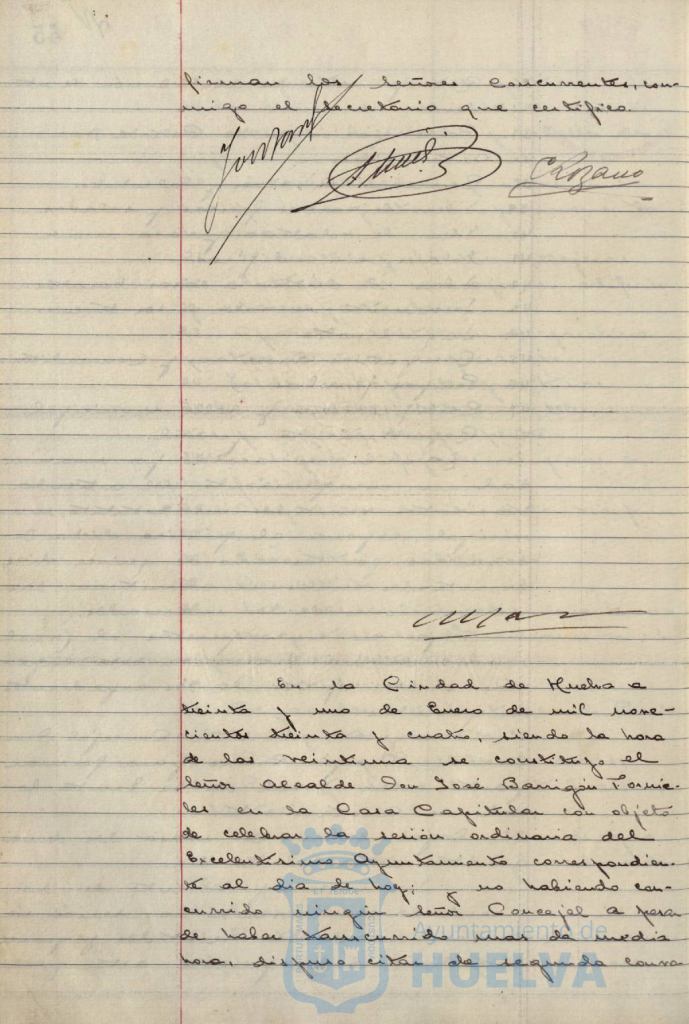 firman los señores concurrentes, con-
migo el secretario que certifico.
C Lozano
En la Ciudad de Huelva a
treinta y uno de Enero de mil nove-
cientos treinta y cuatro, siendo la hora
de las veintiuna se constituyó el
Señor Alcalde Don José Barrigón Fornie-
les en la Casa Capitular con objeto
de celebrar la sesión ordinaria del
Excelentísimo Ayuntamiento correspondien-
te al dia de hoy; y no habiendo con-
currido ningún Señor Concejal a pesar
de haber transcurrido mas de media
hora, dispuso citar de segunda convo
Ayuntamiento de
HUELVA